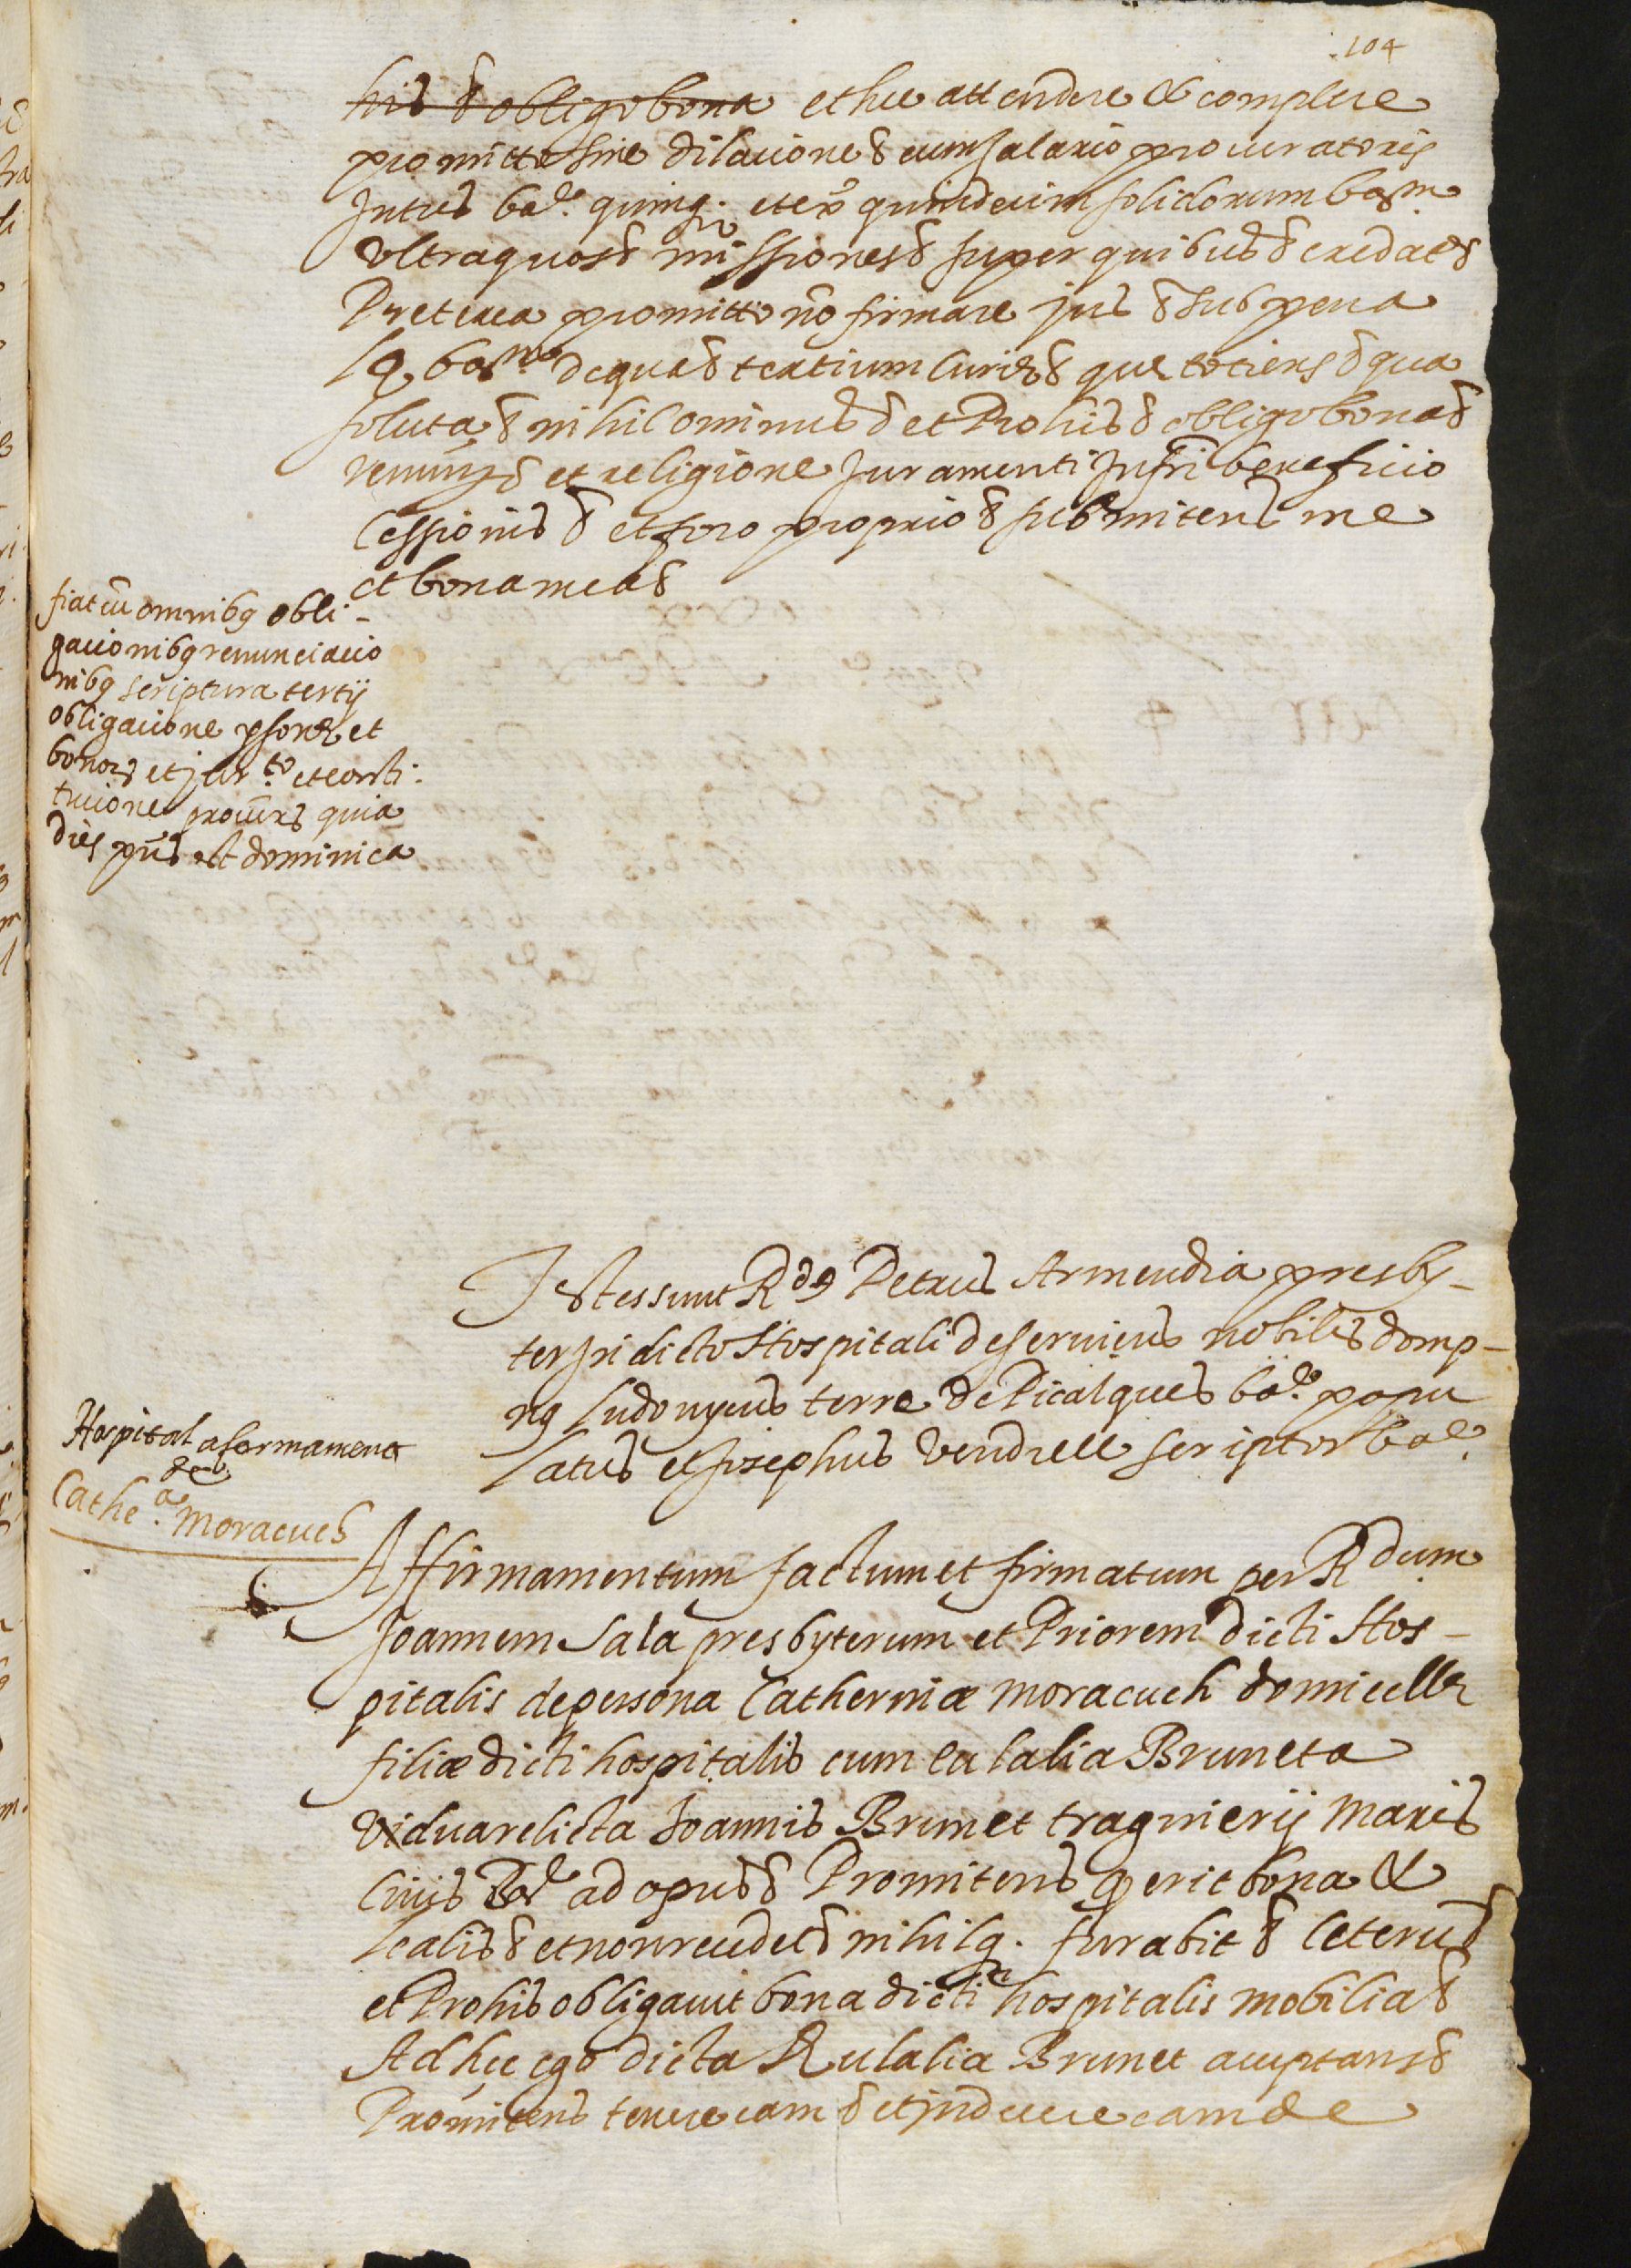 104
his & obligo bona et hec attendere & complere
promitto sine dilacione & cum salario procuratoris
Intus ba.e quinq. et ex.a quindecim solidorum barm.
Ultra quos & missiones & super quibus & credat &
Preterea promitto nō firmare jus & sub pena
barm.e de qua & tertium Curiæ & que totiens & qua
soluta & nihilominus & et Pro his & obligo bona &
renun & et religione Juramenti Infrī beneficio
Cessionis & et foro proprio & submitens me
et bona mea &
fiat cū omnibq obli-
gacionibq renunciacio
nibq scriptura tertij
obligacione psonæ et
bonorꝫ et jur.to et consti-
tucione procūris quia
dies pñs est dominica
Testes sunt Rdq Petrus Armendia presby-
ter In dicto Hospitali deserviens nobilis domp-
nq Ludovycus terre de Picalques ba.e popu
latus et Josephus Vendrell scriptor bae.
Hospital afermament
de
Cathe.a moracues
Affirmamentum factum et firmatum per Rdum
Joannem Sala presbyterum et Priorem dicti Hos-
pitalis de persona Catherinæ moracuch domicellæ
filiæ dicti hospitalis cum Eulalia Bruneta
vidua relicta Joannis Brunet traginerij maris
Civis Bar.e ad opus & Promitens q erit bona &
lealis & et non recedet & nihilq. furabit & Ceterū &
et Pro his obligavit bona dicti hospitalis mobilia &
Ad hec ego dicta Eulalia Brunet acceptans &
Promitens tenere eam & et Inducere eam de